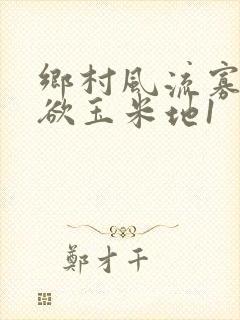 鄉村風流寡
欲玉米地1
鄭才千